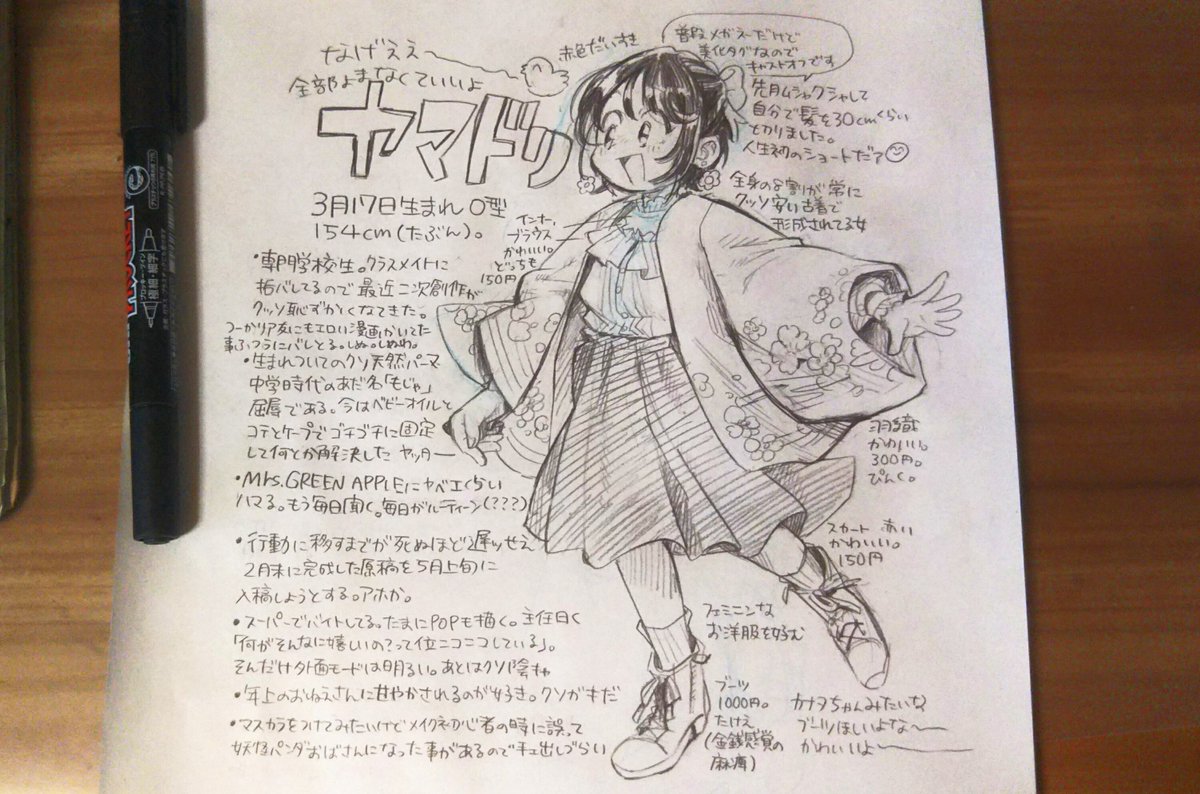 なげええ〜
全部よまなくていいよ
赤色だいすき
普段メガネーだけで
美化タグなので
キャストオフです
ヤマドリ
先月ムシャクシャして
自分で髪を30cmくらい
切りました。
人生初のショートだァ
3月17日生まれ O型
154cm(たぶん)。
全身の8割が常に
クッソ安い古着で
形成されてる女
インナー、
ブラウス
かわいい。
どっちも
150円
・専門学校生。クラスメイトに
垢バレしてるので最近二次創作が
クッソ恥ずかしくなてきた。
つーかリア友にもエロい漫画かいてた
事ふつうにバレとる。しぬ。しぬわ。
・生まれついてのクソ天然パーマ
中学時代のあだ名「もじゃ」
屈辱である。今はベビーオイルと
コテとケープでゴチゴチに固定
して何とか解決した ヤッター
・Mrs.GREEN APPLEにヤベエくらい
ハマる。もう毎日聞く。毎日がルーティーン(???)
・行動に移すまでが死ぬほど遅ッせえ
2月末に完成した原稿を5月上旬に
入稿しようとする。アホか。
・スーパーでバイトしてる。たまにPOPも描く。主任曰く
「何がそんなに嬉しいの?って位ニコニコしている」。
そんだけ外面モードは明るい。あとはクソ陰キャ
・年上のおねえさんに甘やかされるのが好き。クソガキだ
・マスカラをつけてみたいけどメイク初心者の時に誤って
妖怪パンダおばさんになった事があるので手出しづらい
羽織
かわいい。
300円。
ぴんく。
スカート 赤い
かわいい。
150円
フェミニンな
お洋服を好む
ブーツ
1000円。
たけえ
(金銭感覚の
麻痺)
カナヲちゃんみたいな
ブーツほしいよな〜
かわいいよ〜